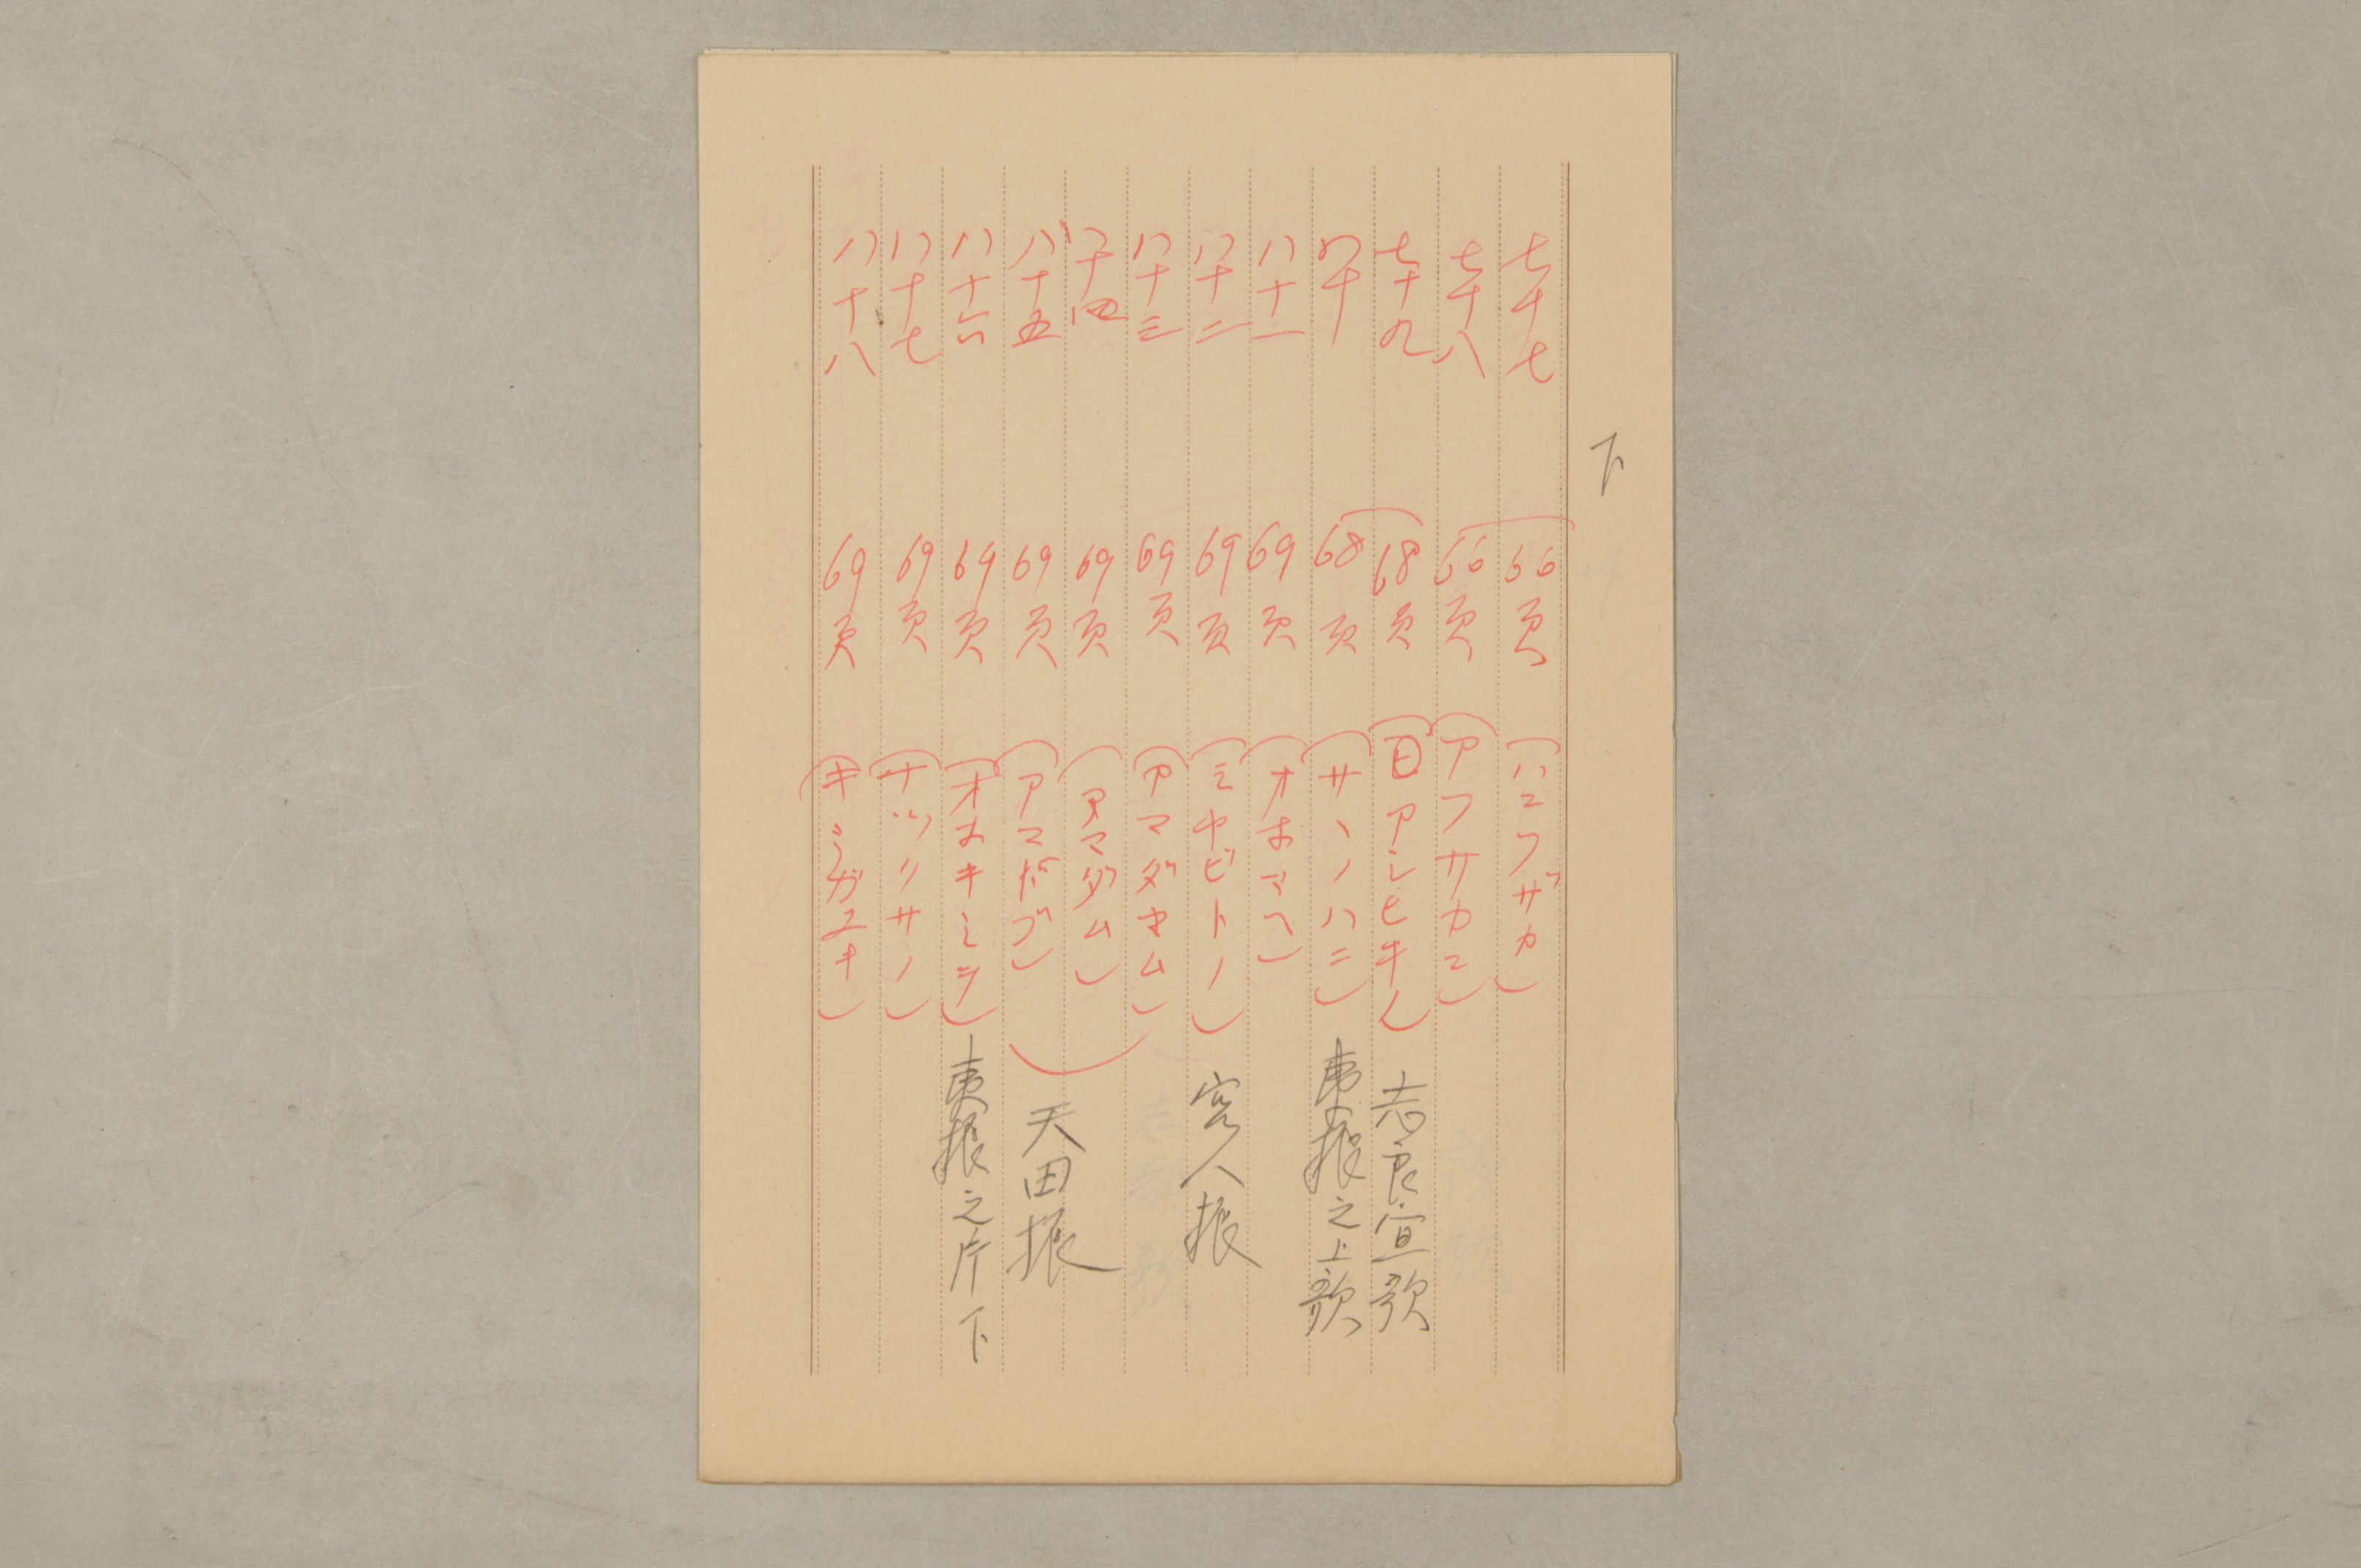 下
七十七 66頁 (ハニフザカ)
七十八 66頁 (アフサカニ)
七十九 68頁 (日アシヒキノ) 志良宣歌
八十 68頁 (サヽノハニ) 夷振之上歌
八十一 69頁 (オホマヘ)
八十二 69頁 (ミヤビトノ) 宮人振
八十三 69頁 (アマダム)
八十四 69頁 (アマダム)
八十五 69頁 (アマトブ) 天田振
八十六 69頁 (オホキミヲ) 夷振之片下
八十七 69頁 (ナツクサノ)
八十八 69頁 (キミガユキ)